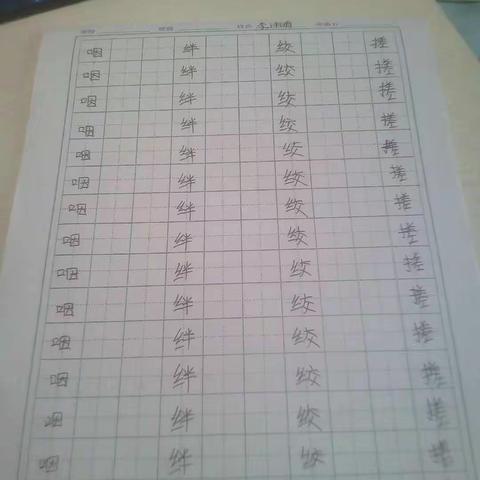 姓名 李
咽 绊 绞 搓
咽 绊 绞 搓
咽 绊 绞 搓
咽 绊 绞 搓
咽 绊 绞 搓
咽 绊 绞 搓
咽 绊 绞 搓
咽 绊 绞 搓
咽 绊 绞 搓
咽 绊 绞 搓
咽 绊 绞 搓
咽 绊 绞 搓
咽 绊 绞 搓
咽 绊 绞 搓